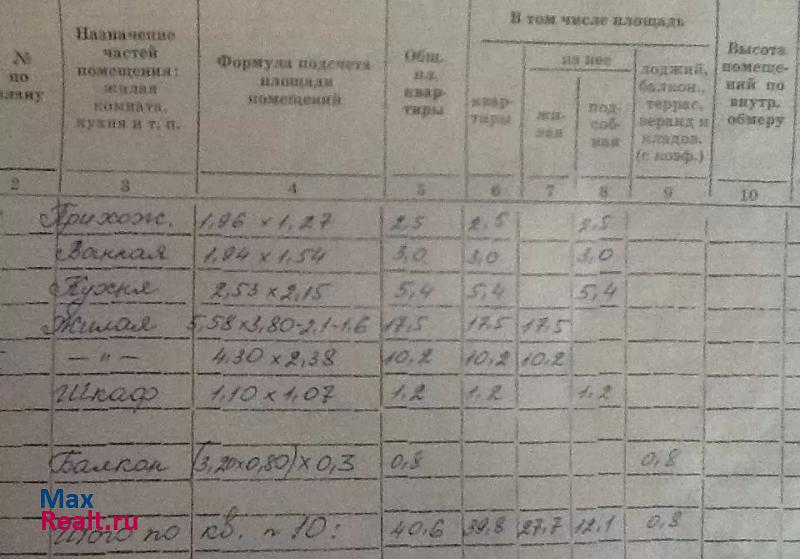 № по плану
Назначение частей помещения: жилая комната, кухня и т. п.
Формула подсчета площади помещений
Общ. пл. квартиры
В том числе площадь
из нее
квартиры
жилая
подсобная
лоджий, балкон., террас, веранд и кладов. (с коэф.)
Высота помещений по внутр. обмеру
2 3 4 5 6 7 8 9 10
Прихож. 1,96 x 1,27 2,5 2,5 2,5
Ванная 1,94 x 1,54 3,0 3,0 3,0
Кухня 2,53 x 2,15 5,4 5,4 5,4
Жилая 5,58 x 3,80-2,1-1,6 17,5 17,5 17,5
— " — 4,30 x 2,38 10,2 10,2 10,2
Шкаф 1,10 x 1,07 1,2 1,2 1,2
Балкон (3,20x0,80) x 0,3 0,8 0,8
Max
Realt.ru
Итого по кв. n 10: 40,6 39,8 27,7 12,1 0,8